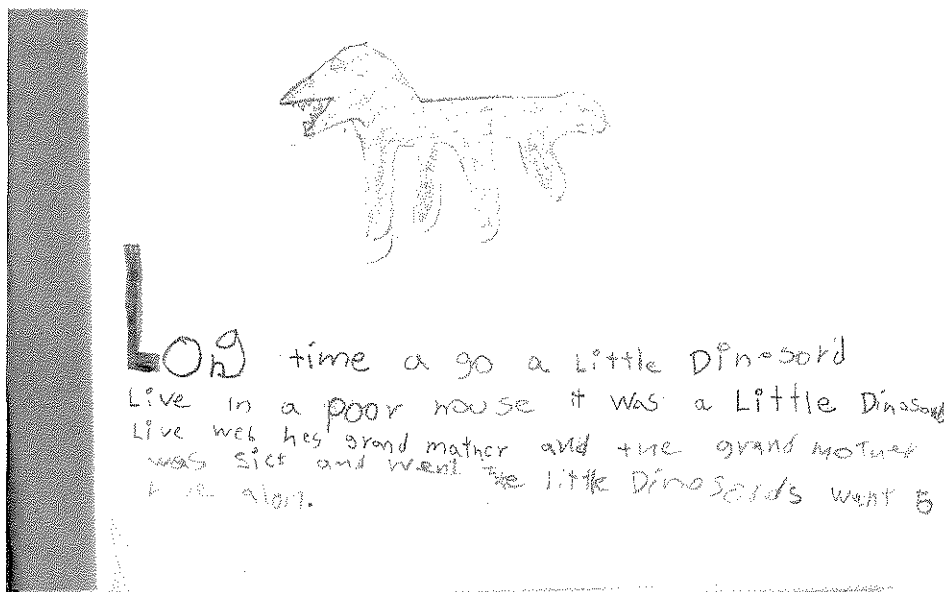 Long time a go a Little Dinosord
Live in a poor house it was a Little Dinosord
Live weh hes grand mather and the grand mother
was sick and went the little Dinosords want
alon.